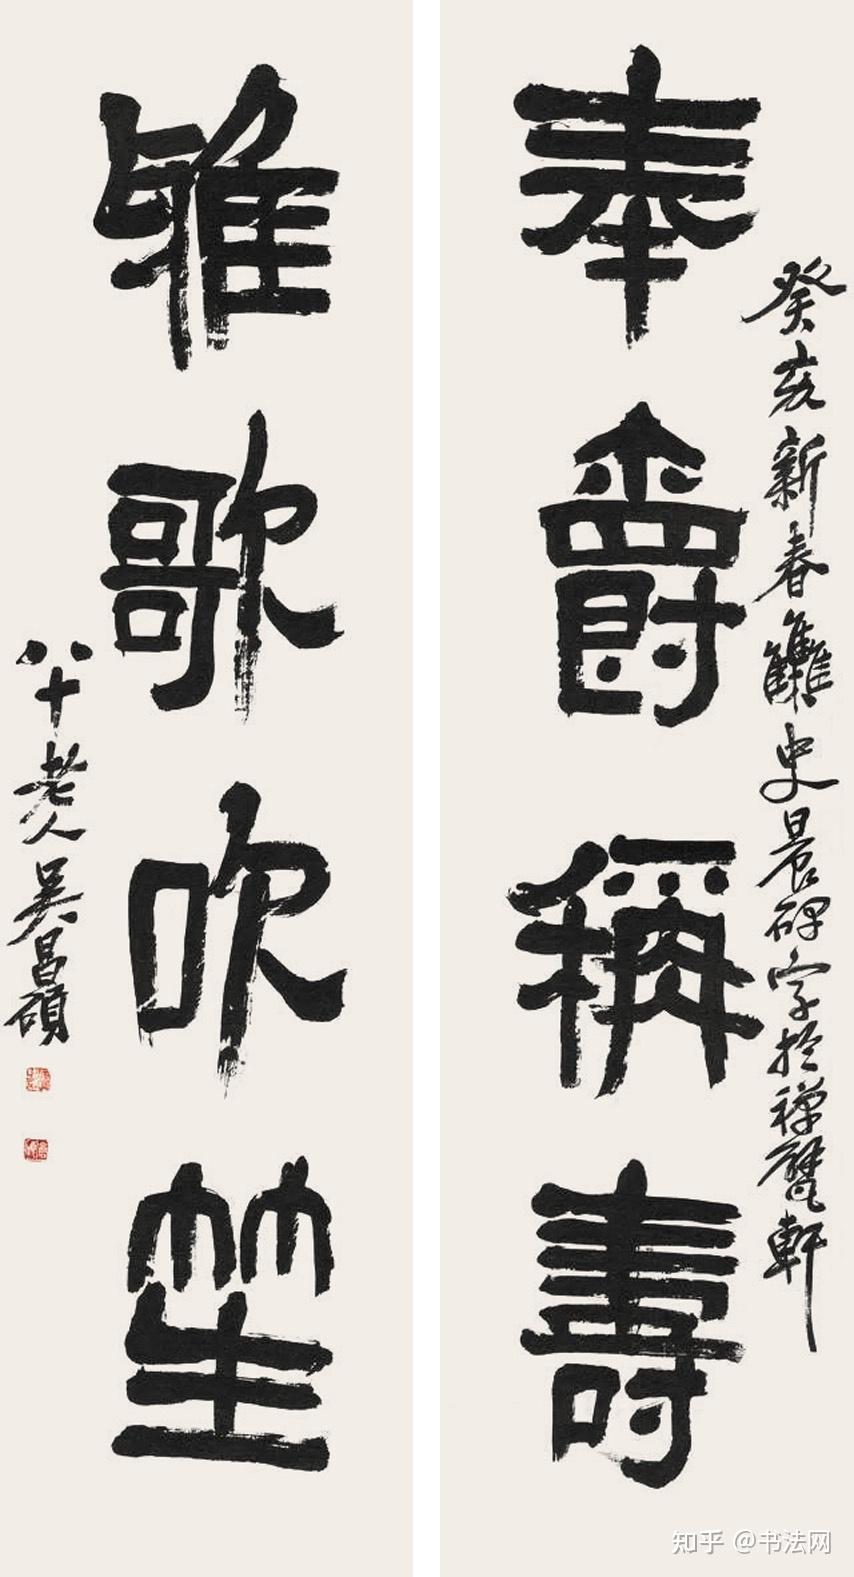 奉爵稱壽
癸亥新春雠史晨碑字於禅甓軒
雅歌吹笙
八十老人吴昌碩
知乎 @书法网